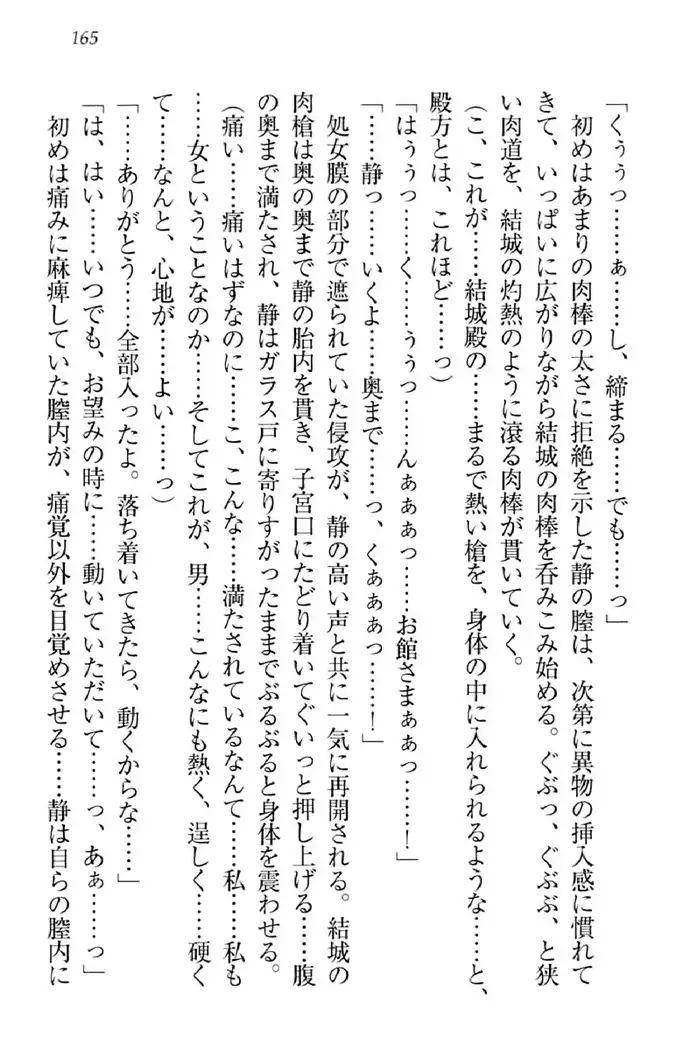 165
「くぅぅっ……ぁ……し、締まる……でも……っ」
初めはあまりの肉棒の太さに拒絶を示した静の膣は、次第に異物の挿入感に慣れて
きて、いっぱいに広がりながら結城の肉棒を呑みこみ始める。ぐぶっ、ぐぶぶ、と狭
い肉道を、結城の灼熱のように滾る肉棒が貫いていく。
(こ、これが……結城殿の……まるで熱い槍を、身体の中に入れられるような……と、
殿方とは、これほど……っ)
「はぅぅっ……く……ぅぅっ……んぁぁぁっ……お館さまぁぁっ……!」
「……静っ……いくよ……奥まで……っ、くぁぁぁっ……!」
処女膜の部分で遮られていた侵攻が、静の高い声と共に一気に再開される。結城の
肉槍は奥の奥まで静の胎内を貫き、子宮口にたどり着いてぐいっと押し上げる……腹
の奥まで満たされ、静はガラス戸に寄りすがったままでぶるぶると身体を震わせる。
(痛い……痛いはずなのに……こ、こんな……満たされているなんて……私……私も
……女ということなのか……そしてこれが、男……こんなにも熱く、逞しく……硬く
て……なんと、心地が……よい……っ)
「……ありがとう……全部入ったよ。落ち着いてきたら、動くからな……」
「は、はい……いつでも、お望みの時に……動いていただいて……っ、あぁ……っ」
初めは痛みに麻痺していた膣内が、痛覚以外を目覚めさせる……静は自らの膣内に